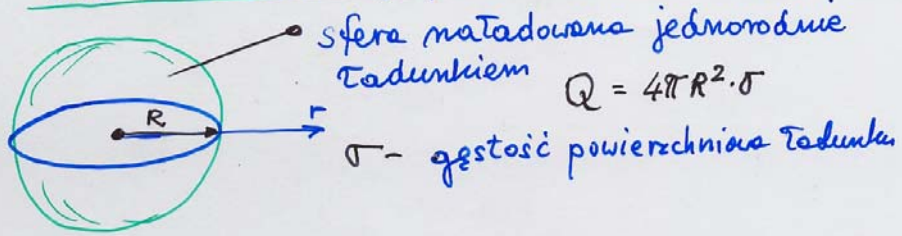 sfera naładowana jednorodnie
ładunkiem
Q = 4πR²·σ
R
r
σ - gęstość powierzchniowa ładunku